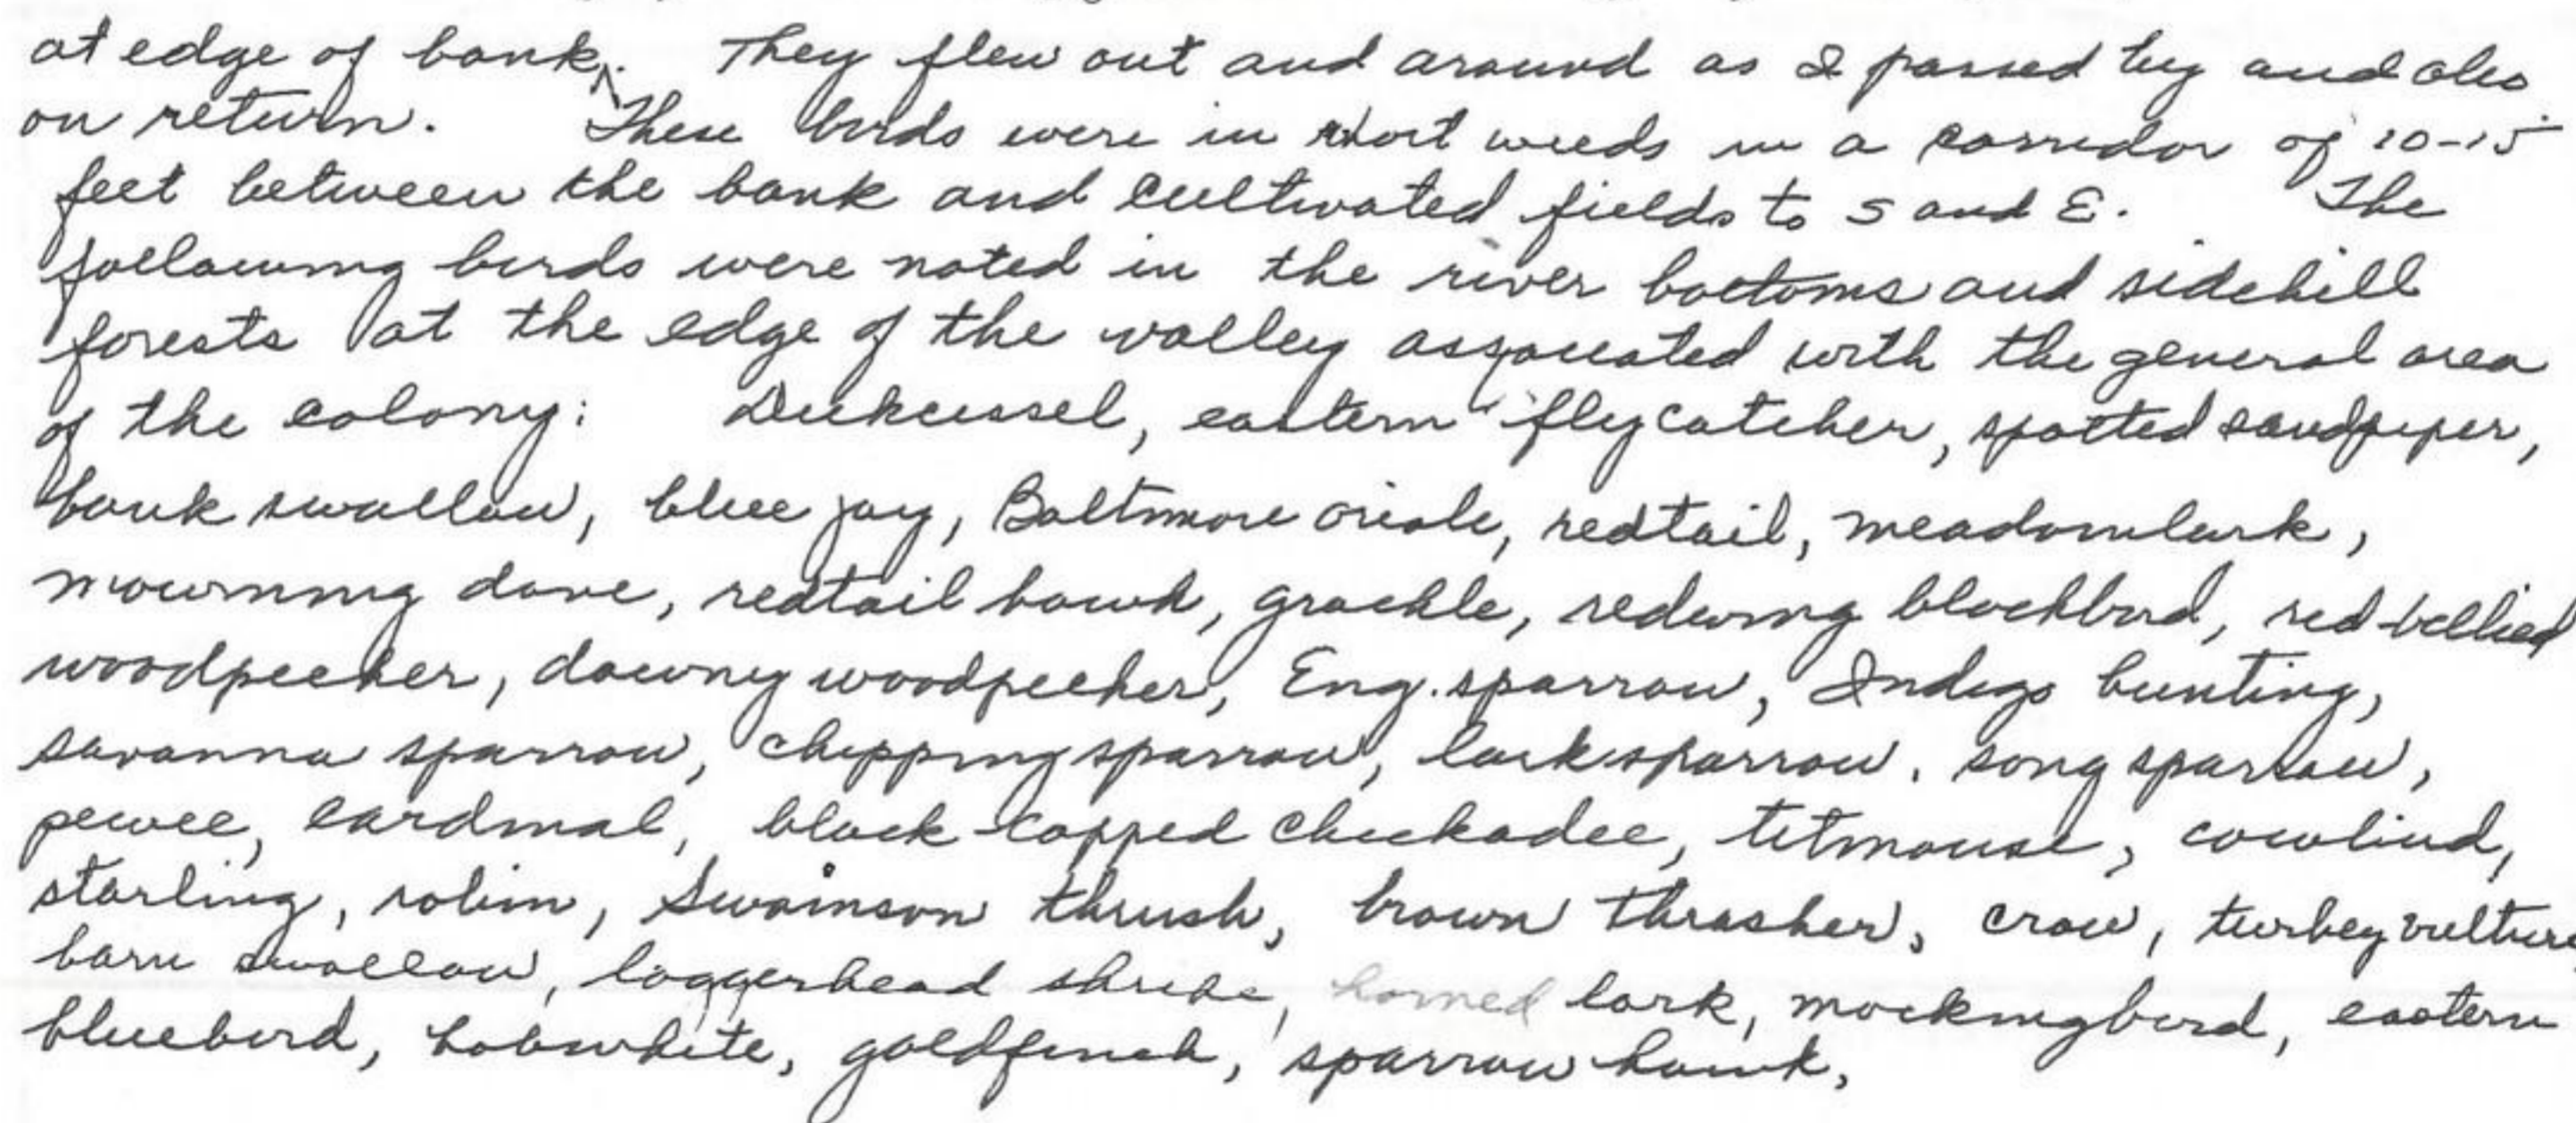 at edge of bank. They flew out and around as I passed by and also
on return. These birds were in short weeds in a corridor of 10-15
feet between the bank and cultivated fields to S and E. The
following birds were noted in the river bottoms and sidehill
forests at the edge of the valley associated with the general area
of the colony: Dickcissel, eastern flycatcher, spotted sandpiper,
bank swallow, blue jay, Baltimore oriole, redtail, meadowlark,
mourning dove, redtail hawk, grackle, redwing blackbird, red-bellied
woodpecker, downy woodpecker, Eng. sparrow, Indigo bunting,
savanna sparrow, chipping sparrow, lark sparrow, song sparrow,
pewee, cardinal, black-capped chickadee, titmouse, cowbird,
starling, robin, Swainson thrush, brown thrasher, crow, turkey vulture,
barn swallow, loggerhead shrike, horned lark, mockingbird, eastern
bluebird, bobwhite, goldfinch, sparrow hawk,